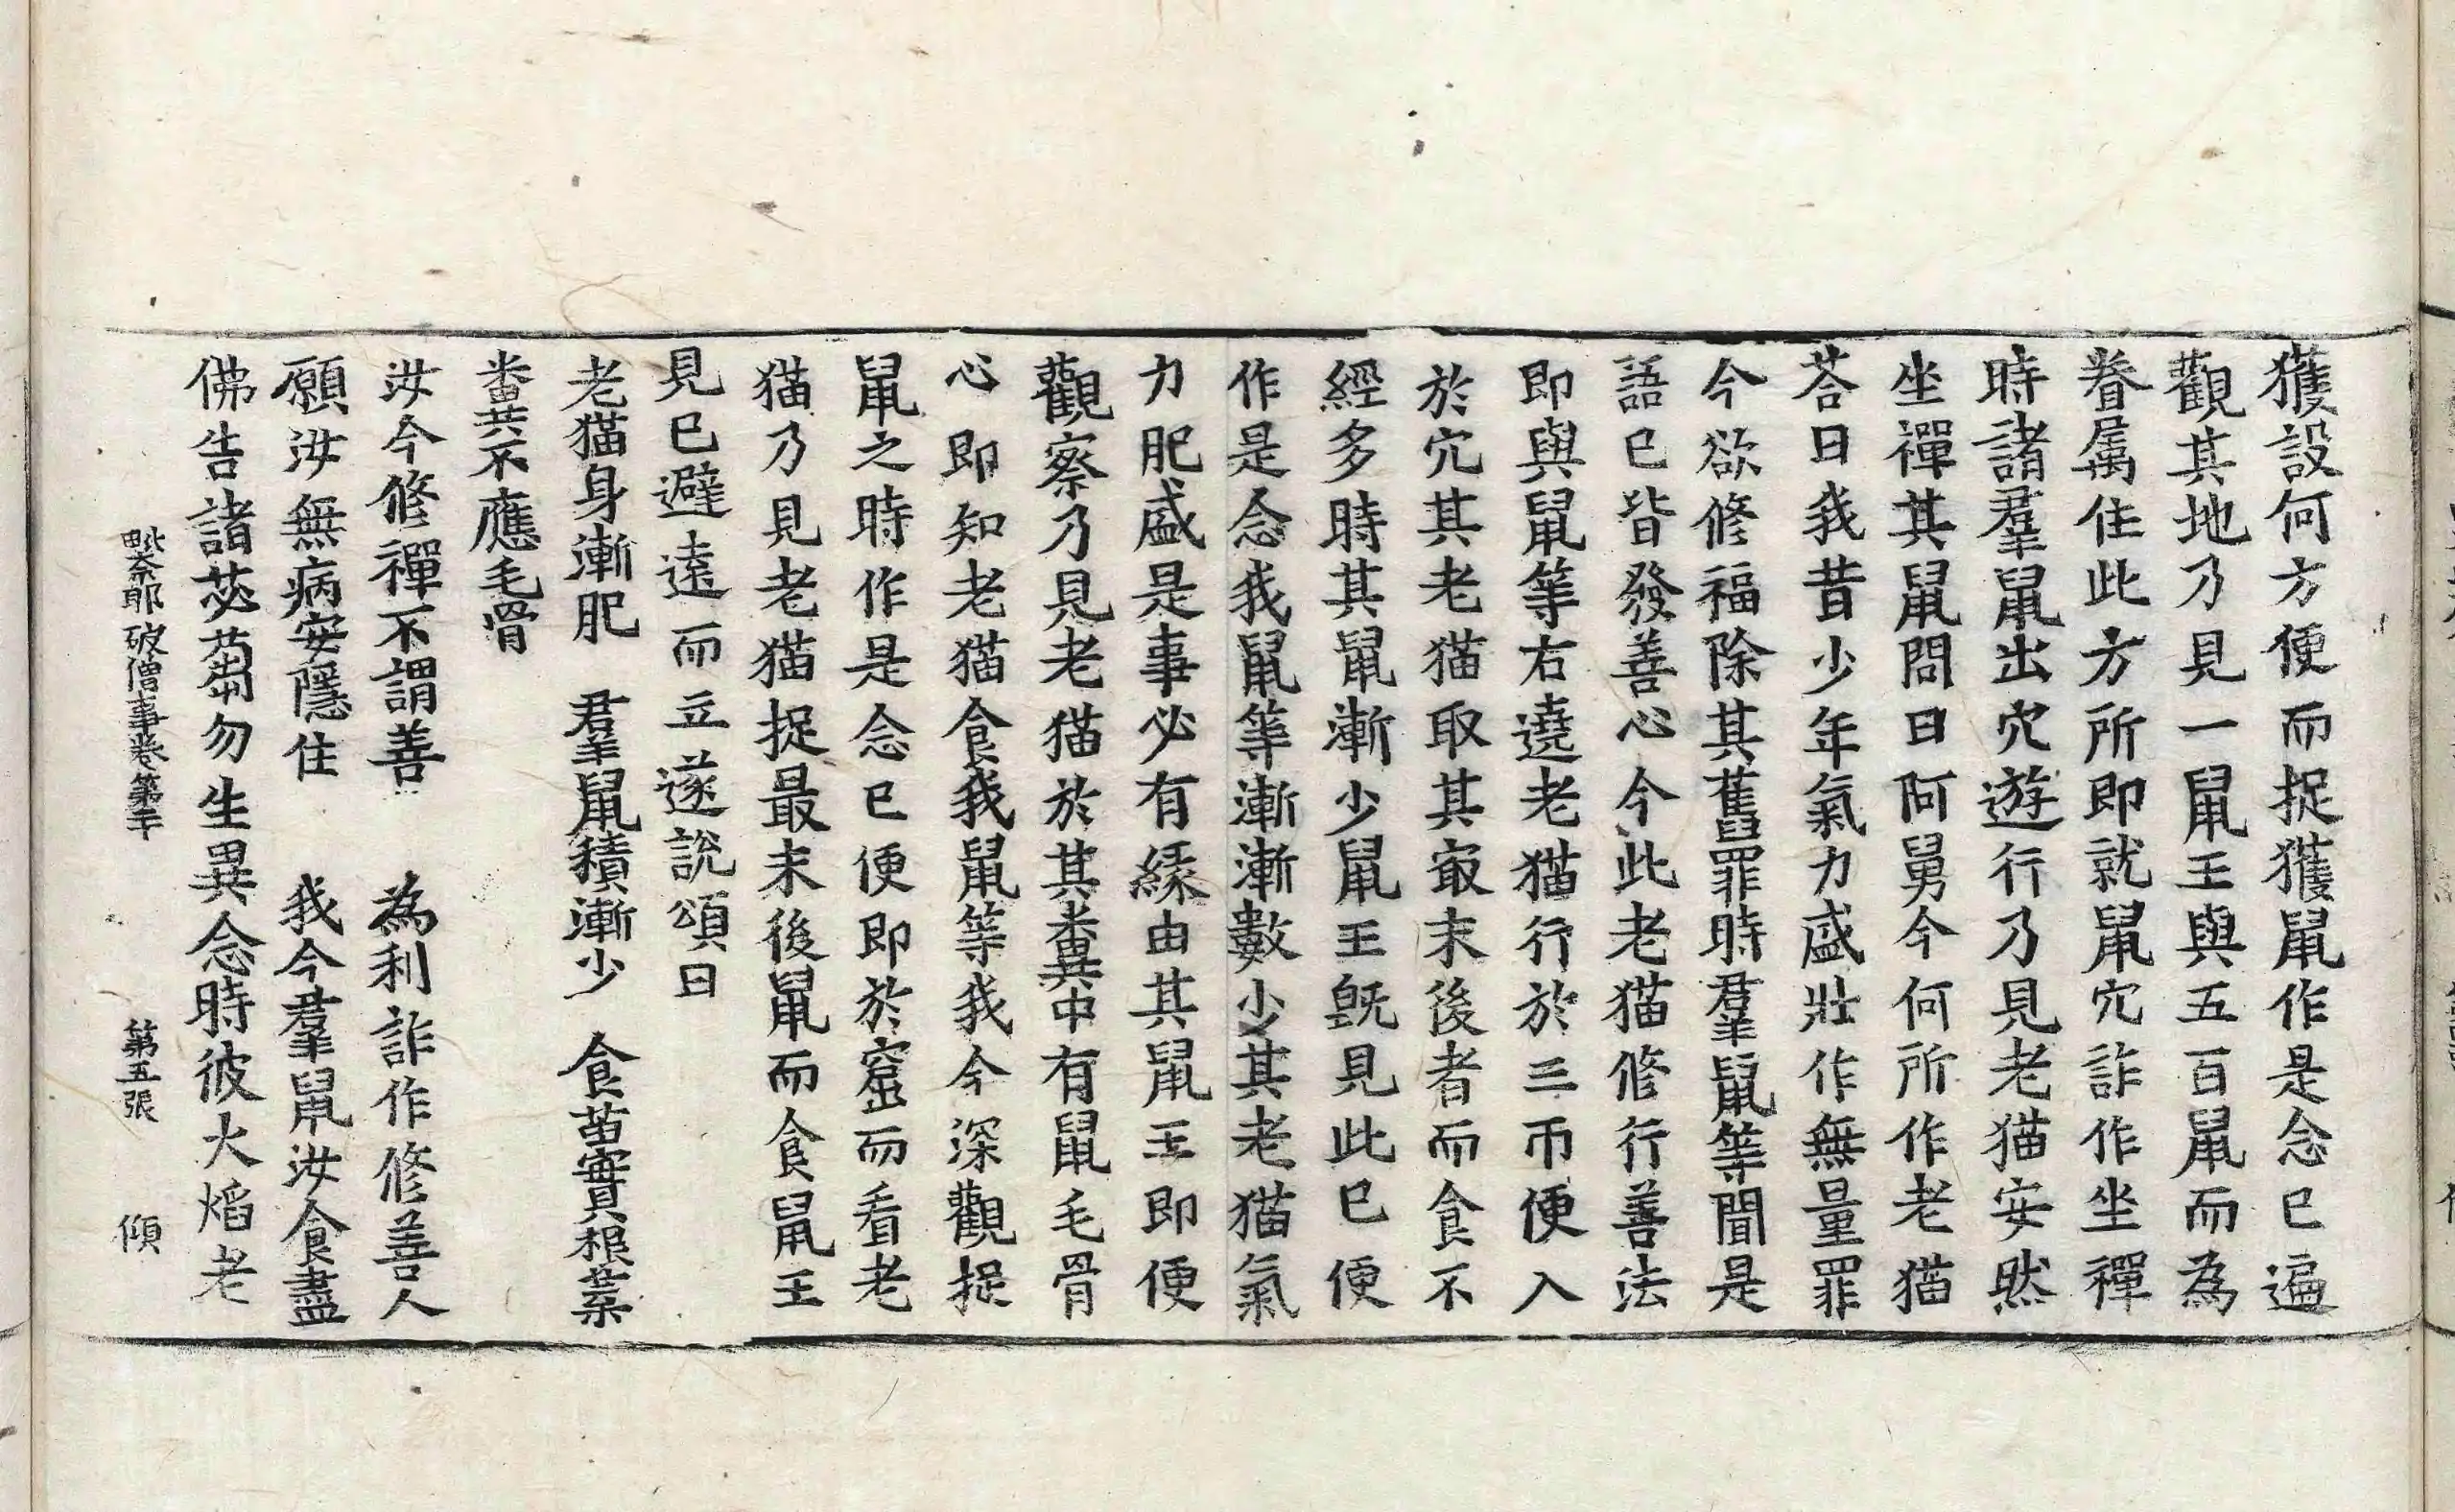 獲設何方便而捉獲鼠作是念已遍
觀其地乃見一鼠王與五百鼠而為
眷属住此方所即就鼠穴詐作坐禪
時諸羣鼠出穴遊行乃見老猫安然
坐禪其鼠問曰阿舅今何所作老猫
荅曰我昔少年氣力盛壯作無量罪
今欲修福除其舊罪時羣鼠等聞是
語已皆發善心今此老猫修行善法
即與鼠等右遶老猫行於三帀便入
於穴其老猫取其㝡末後者而食不
經多時其鼠漸少鼠王旣見此已便
作是念我鼠等漸漸數少其老猫氣
力肥盛是事必有緣由其鼠王即便
觀察乃見老猫於其糞中有鼠毛骨
心即知老猫食我鼠等我今深觀捉
鼠之時作是念已便即於窟而看老
猫乃見老猫捉最末後鼠而食鼠王
見已避遠而立遂說頌曰
老猫身漸肥　羣鼠積漸少　食苗實根葉
糞不應毛骨
汝今修禪不謂善　為利詐作修善人
願汝無病安隱住　我今羣鼠汝食盡
佛告諸苾蒭勿生異念時彼火焰老
毗奈耶破僧事卷第二十　第五張　傾